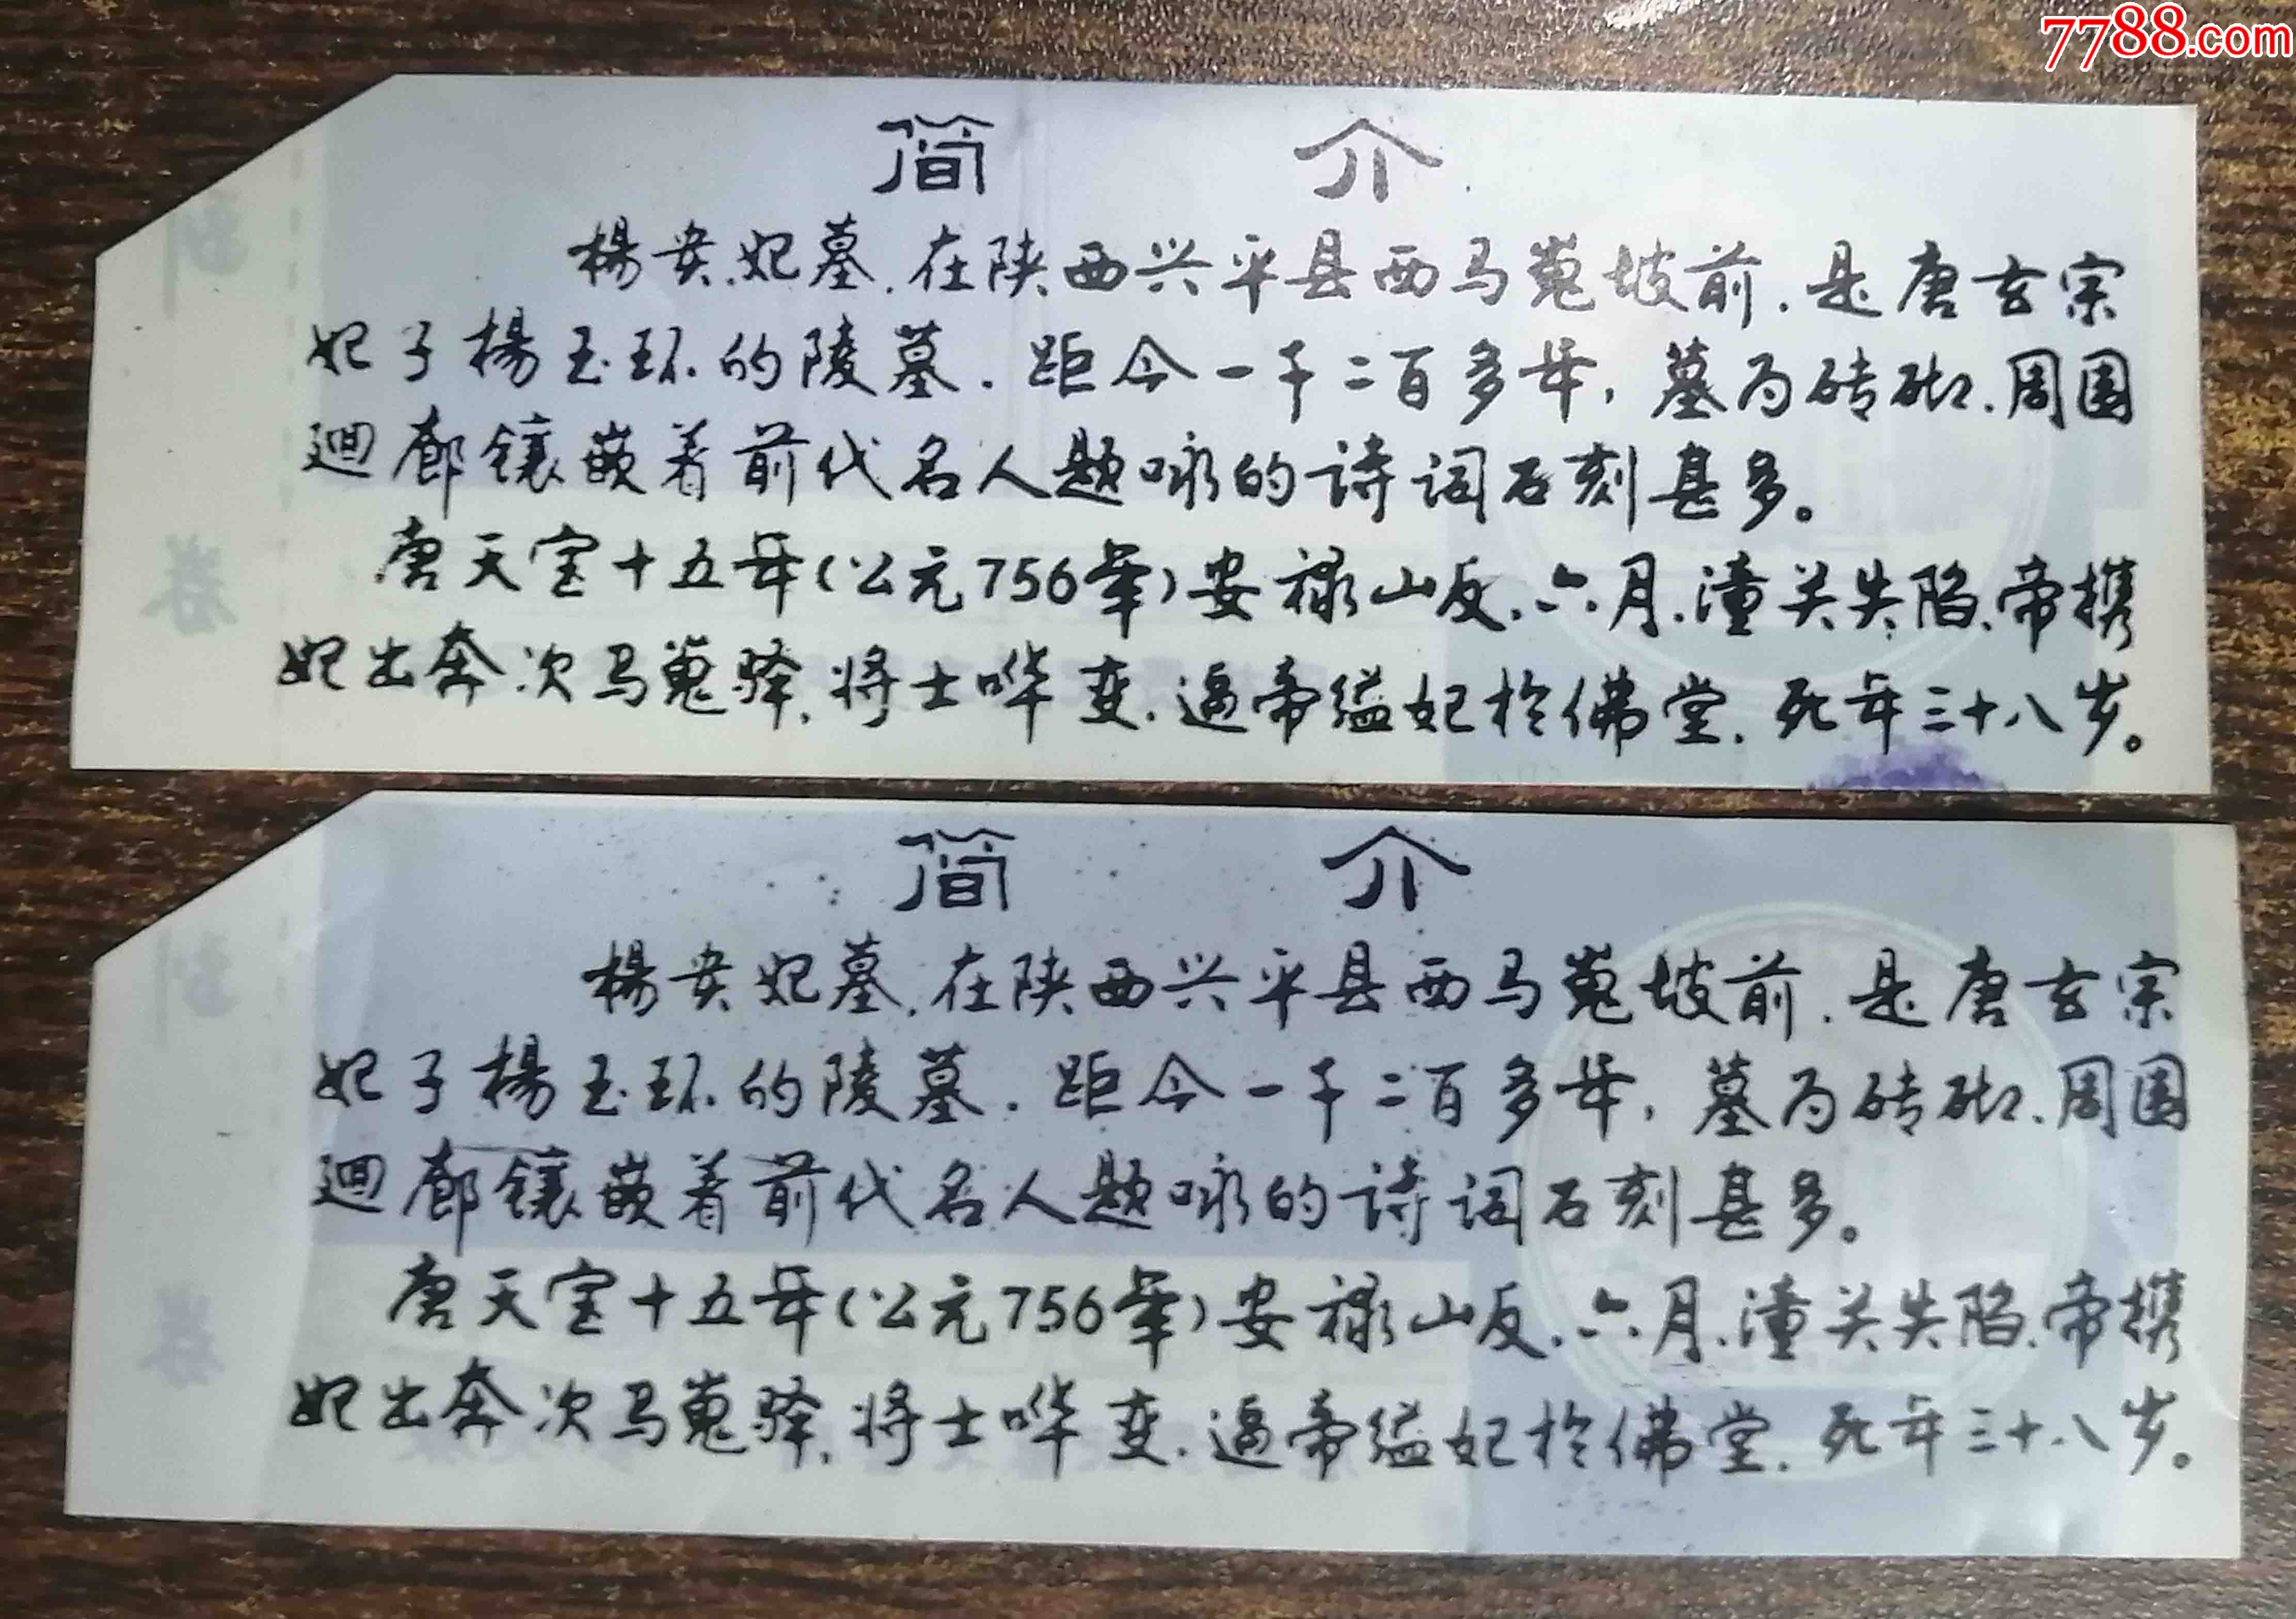 7788.com
简 介
楊贵妃墓.在陕西兴平县西马嵬坡前.是唐玄宗
妃子楊玉环的陵墓.距今一千二百多年,墓为砖砌.周围
廻廊镶嵌着前代名人题咏的诗词石刻甚多。
唐天宝十五年(公元756年)安禄山反.六月.潼关失陷.帝携
妃出奔次马嵬驿.将士哗变.逼帝缢妃於佛堂.死年三十八岁。
简 介
楊贵妃墓.在陕西兴平县西马嵬坡前.是唐玄宗
妃子楊玉环的陵墓.距今一千二百多年,墓为砖砌.周围
廻廊镶嵌着前代名人题咏的诗词石刻甚多。
唐天宝十五年(公元756年)安禄山反.六月.潼关失陷.帝携
妃出奔次马嵬驿.将士哗变.逼帝缢妃於佛堂.死年三十八岁。